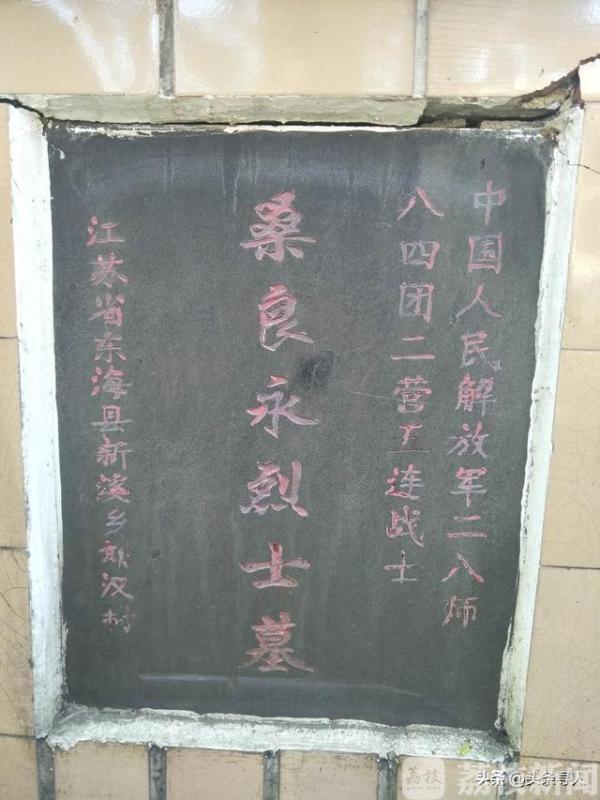 中国人民解放军二八师
八四团二营五连战士
桑良永烈士墓
江苏省东海县新溪乡郭汉村
荔枝
荔枝新闻
头条@头条寻人